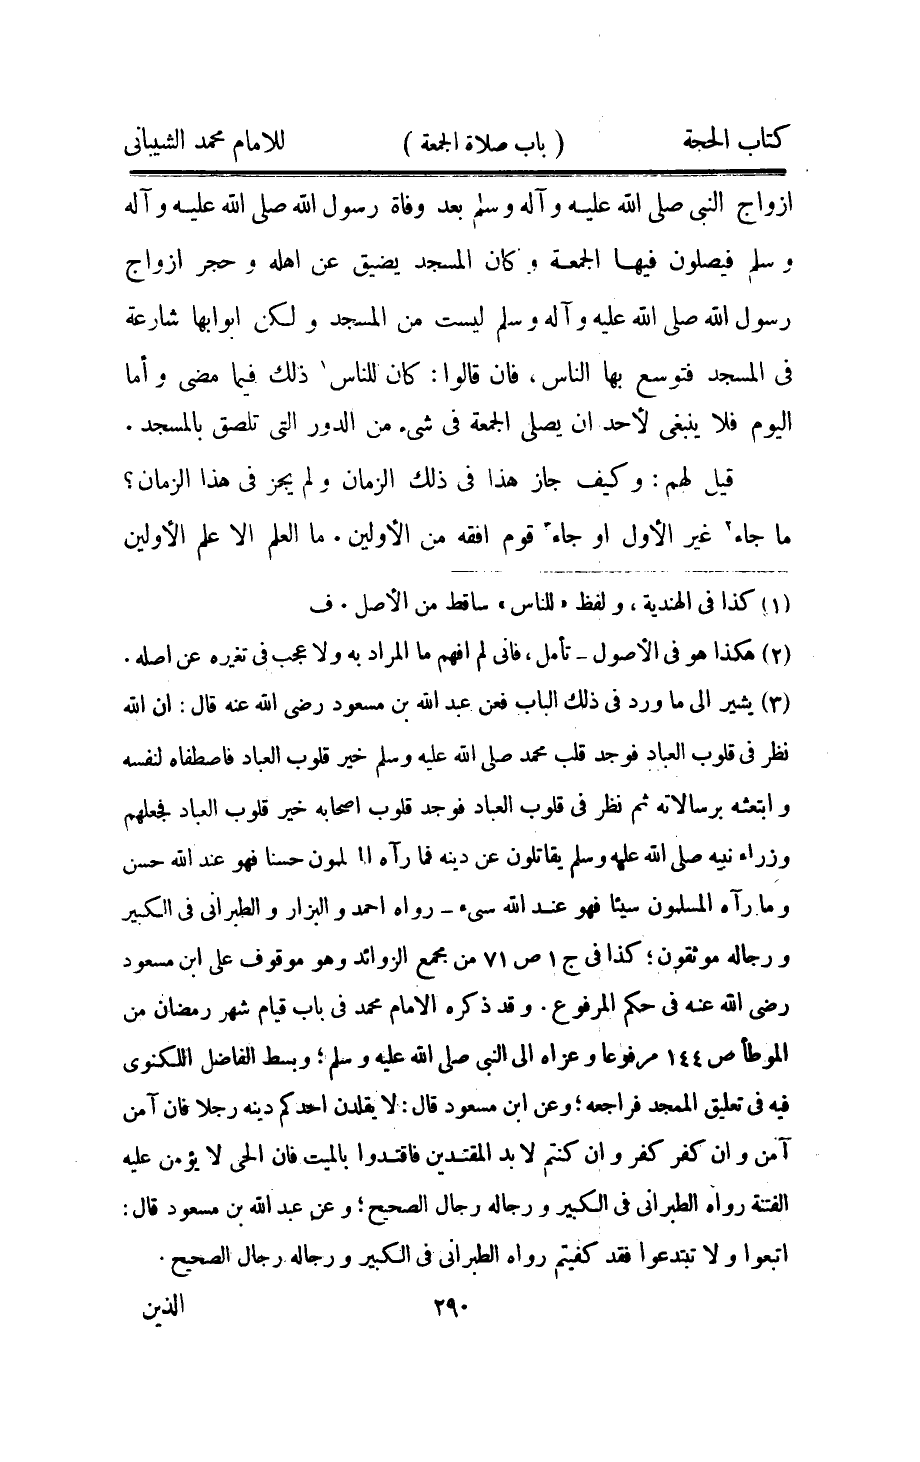 كتاب الحجة ( باب صلاة الجمعة ) للامام محمد الشيبانى
ازواج النبى صلى الله عليه و آله و سلم بعد وفاة رسول الله صلى الله عليه و آله
و سلم فيصلون فيها الجمعة و كان المسجد يضيق عن اهله و حجر ازواج
رسول الله صلى الله عليه و آله و سلم ليست من المسجد و لكن ابوابها شارعة
فى المسجد فتوسع بها الناس ، فان قالوا : كان للناس١ ذلك فيما مضى و أما
اليوم فلا ينبغى لأحد ان يصلى الجمعة فى شىء من الدور التى تلصق بالمسجد .
قيل لهم : و كيف جاز هذا فى ذلك الزمان و لم يجز فى هذا الزمان ؟
ما جاء٢ غير الأول او جاء٣ قوم افقه من الأولين . ما العلم الا علم الأولين
(١) كذا فى الهندية ، و لفظ « للناس » ساقط من الأصل . ف
(٢) هكذا هو فى الأصول ـ تأمل ، فانى لم افهم ما المراد به و لا عجب فى تغيره عن اصله .
(٣) يشير الى ما ورد فى ذلك الباب فعن عبد الله بن مسعود رضى الله عنه قال : ان الله
نظر فى قلوب العباد فوجد قلب محمد صلى الله عليه وسلم خير قلوب العباد فاصطفاه لنفسه
و ابتعثه برسالاته ثم نظر فى قلوب العباد فوجد قلوب اصحابه خير قلوب العباد فجعلهم
وزراء نبيه صلى الله عليه وسلم يقاتلون عن دينه فما رآه المسلمون حسنا فهو عند الله حسن
و ما رآه المسلمون سيئا فهو عند الله سىء ـ رواه احمد و البزار و الطبرانى فى الكبير
و رجاله موثقون ؛ كذا فى ج ١ ص ٧١ من مجمع الزوائد وهو موقوف على ابن مسعود
رضى الله عنه فى حكم المرفوع . و قد ذكره الامام محمد فى باب قيام شهر رمضان من
الموطأ ص ١٤٤ مرفوعا و عزاه الى النبى صلى الله عليه و سلم ؛ و بسط الفاضل اللكنوى
فيه فى تعليق الممجد فراجعه ؛ وعن ابن مسعود قال : لا يقلدن احدكم دينه رجلا فان آمن
آمن و ان كفر كفر و ان كنتم لا بد المقتدين فاقتدوا بالميت فان الحى لا يؤمن عليه
الفتنة رواه الطبرانى فى الكبير و رجاله رجال الصحيح ؛ و عن عبد الله بن مسعود قال :
اتبعوا و لا تبتدعوا فقد كفيتم رواه الطبرانى فى الكبير و رجاله رجال الصحيح .
٢٩٠ الذين